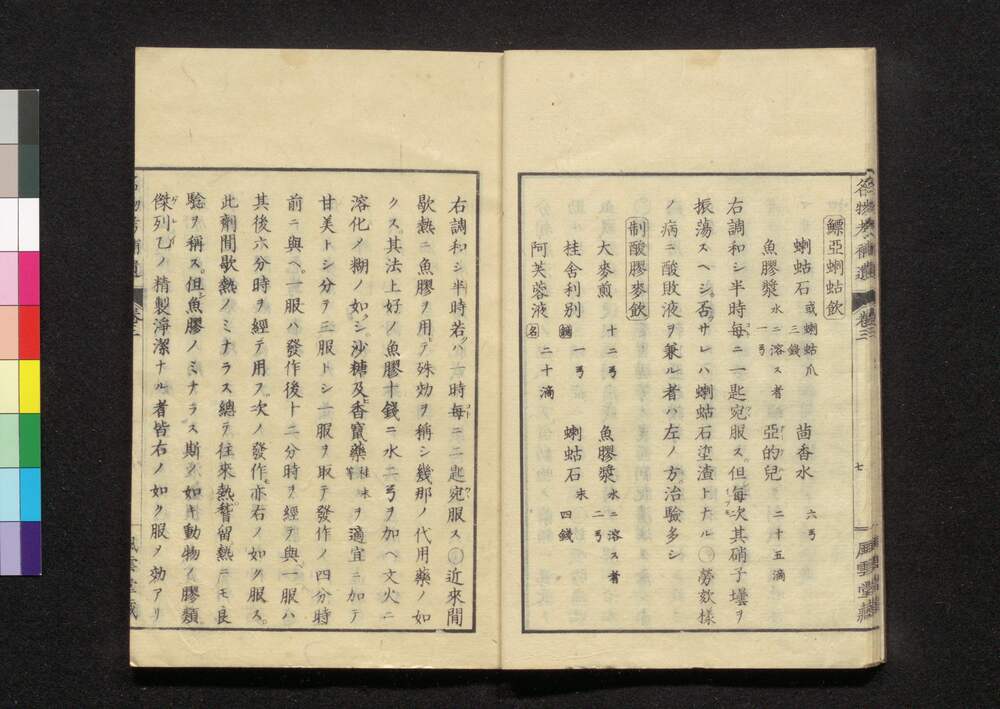 鰾亞蝲蛄飲
蝲蛄石 或蝲蛄爪 三錢 茴香水 六弓
魚膠漿 水ニ溶ス者 一弓 亞的兒 二十五滴
右調和シ半時毎ニ一匙宛服ス。但毎次其硝子壜ヲ
振蕩スヘシ否サレハ蝲蛄石埿渣トナル〇勞欬樣
ノ病ニ酸敗液ヲ兼ル者ハ左ノ方治驗多シ
制酸膠麥飲
大麥煎 十二弓 魚膠漿 水ニ溶ス者 二弓
桂舍利別 舖 一弓 蝲蛄石 末 四錢
阿芙蓉液 名 二十滴
名物考補遺 卷三 七 風雲堂藏
右調和シ半時若ハ一時毎ニ二匙宛服ス〇近來間
歇熱ニ魚膠ヲ用テ殊効ヲ稱シ幾那ノ代用藥ノ如
クス。其法上好ノ魚膠十錢ニ水二弓ヲ加ヘ文火ニ
溶化メ糊ノ如シ沙糖及ヒ香竄藥 桂末等 ヲ適宜ニ加テ
甘美トシ分テ三服トシ一服ヲ取テ發作ノ四分時
前ニ與ヘ。一服ハ發作後十二分時ヲ經テ與一服ハ
其後六分時ヲ經テ用フ。次ノ發作モ亦右ノ如ク服ス。
此劑間歇熱ノミナラス總テ往來熱。稽留熱ニモ良
驗ヲ稱ス。但シ魚膠ノミナラス斯ノ如キ動物ノ膠類
傑列乙ノ精製淨潔ナル者皆右ノ如ク服ヲ効アリ